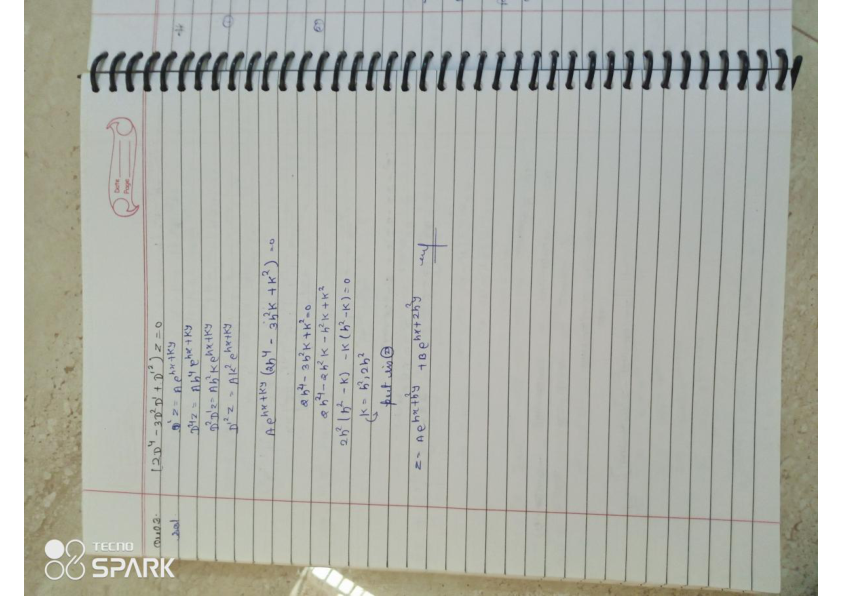 Date
Page
Que2. (2D⁴ - 3D²D' + D'²) z = 0
Sol z = Ae^hx+ky
D⁴z = Ah⁴e^hx+ky
D²D'z = Ah²Ke^hx+ky
D'²z = AK²e^hx+ky
Ae^hx+ky (2h⁴ - 3h²K + K²) = 0
2h⁴ - 3h²K + K² = 0
2h⁴ - 2h²K - h²K + K²
2h² (h² - K) - K (h² - K) = 0
K = h², 2h²
put in
z = Ae^hx+h²y + Be^hx+2h²y
TECNO
SPARK